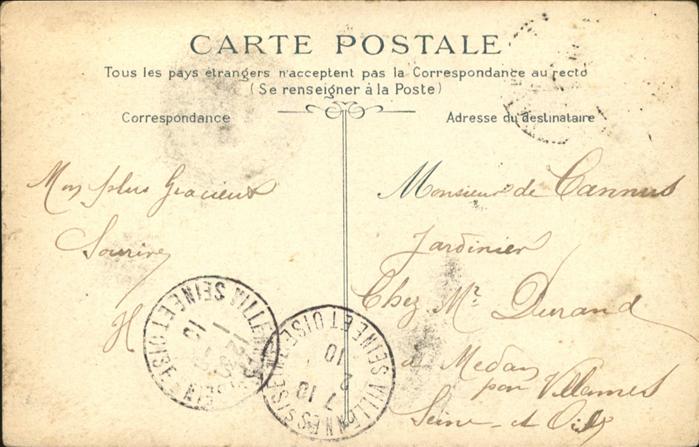 CARTE POSTALE
Tous les pays étrangers n'acceptent pas la Correspondance au recto
(Se renseigner à la Poste)
Correspondance
Adresse du destinataire
Mon plus Gracieux
Sourire
H
Monsieur de Cannus
Jardinier
Chez Mr Durand
à Medan
par Villennes
Seine et Oise
SEINE ET OISE
VILLENNES SEINE ET OISE
7 - 2
10